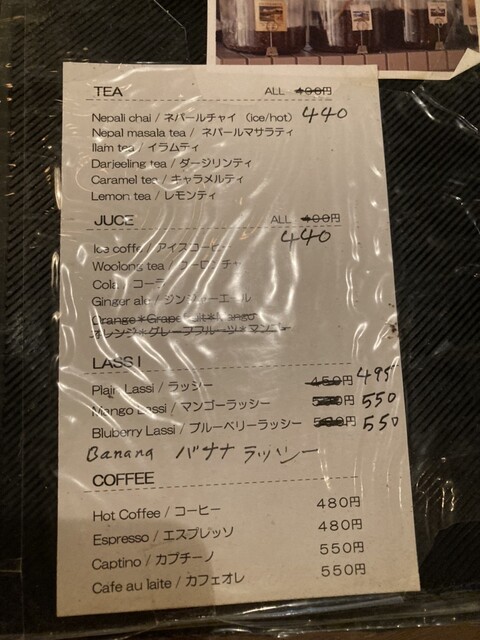 TEA ALL 400円
Nepali chai / ネパールチャイ (ice/hot) 440
Nepal masala tea / ネパールマサラティ
Ilam tea / イラムティ
Darjeeling tea / ダージリンティ
Caramel tea / キャラメルティ
Lemon tea / レモンティ
JUCE ALL 400円
440
Ice coffe / アイスコーヒー
Woolong tea / ウーロンチャ
Cola コーラ
Ginger ale / ジンジャーエール
Orange*Grapefruit*Mango
オレンジ*グレープフルーツ*マンゴー
LASSI
Plain Lassi / ラッシー 450円 495
Mango Lassi / マンゴーラッシー 円 550
Bluberry Lassi / ブルーベリーラッシー 円 550
Banana バナナ ラッシー
COFFEE
Hot Coffee / コーヒー 480円
Espresso / エスプレッソ 480円
Captino / カプチーノ 550円
Cafe au laite / カフェオレ 550円